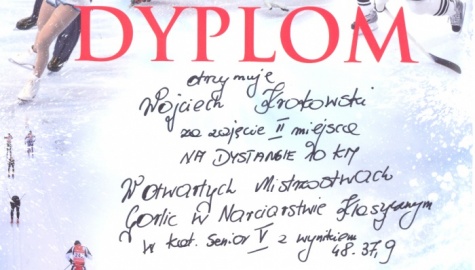 DYPLOM
otrzymuje
Wojciech Krokowski
za zajęcie II miejsca
NA DYSTANSIE 10 KM
W otwartych Mistrzostwach
Gorlic w Narciarstwie Klasycznym
w kat. Senior V z wynikiem
48.37,9